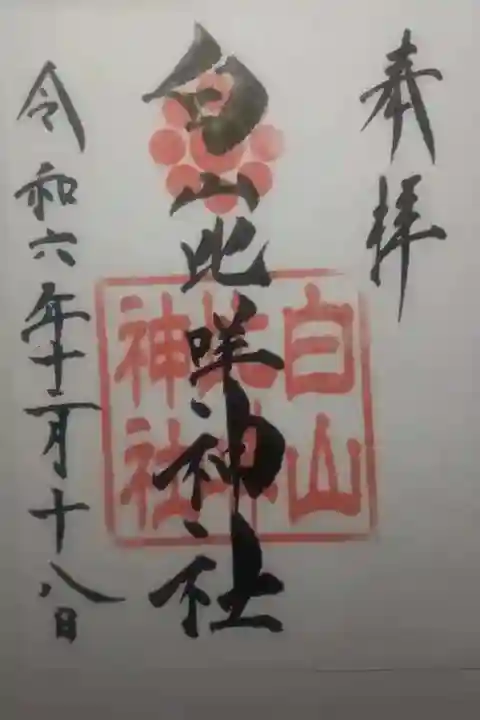 奉拝
白山比咩神社
令和六年十一月十八日
白山
比咩
神社